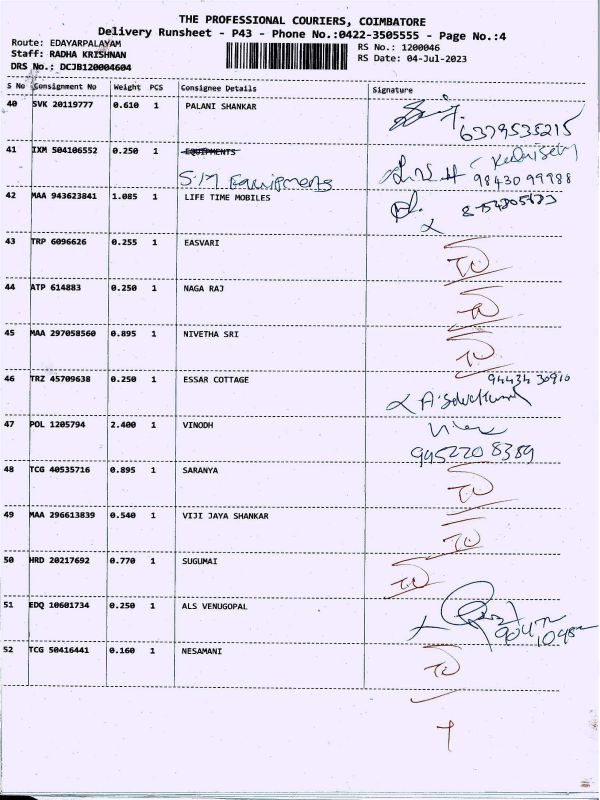 THE PROFESSIONAL COURIERS, COIMBATORE
Delivery Runsheet - P43 - Phone No.:0422-3505555 - Page No.:4
Route: EDAYARPALAYAM RS No.: 1200046
Staff: RADHA KRISHNAN RS Date: 04-Jul-2023
DRS No.: DCJB120004604
S No Consignment No Weight PCS Consignee Details Signature
40 SVK 20119777 0.610 1 PALANI SHANKAR
6379535215
41 IXM 504106552 0.250 1 EQUIPMENTS
S.M Equipments 98430 99988
42 MAA 943623841 1.085 1 LIFE TIME MOBILES
43 TRP 6096626 0.255 1 EASVARI
44 ATP 614883 0.250 1 NAGA RAJ
45 MAA 297058560 0.895 1 NIVETHA SRI
46 TRZ 45709638 0.250 1 ESSAR COTTAGE 94434 30910
47 POL 1205794 2.400 1 VINODH
995220 8389
48 TCG 40535716 0.895 1 SARANYA
49 MAA 296613839 0.540 1 VIJI JAYA SHANKAR
50 HRD 20217692 0.770 1 SUGUMAI
51 EDQ 10601734 0.250 1 ALS VENUGOPAL
52 TCG 50416441 0.160 1 NESAMANI